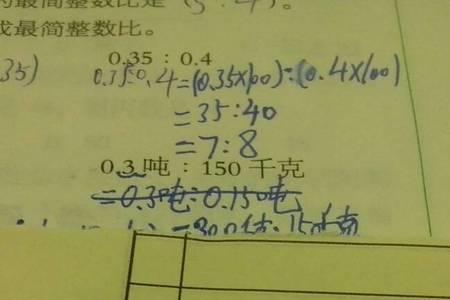 的最简整数比是(5:4)。
成最简整数比。
0.35 : 0.4
35) 0.35:0.4=(0.35×100):(0.4×100)
=35:40
=7:8
0.3吨 : 150千克
=0.3吨:0.150吨
=300千克:150千克